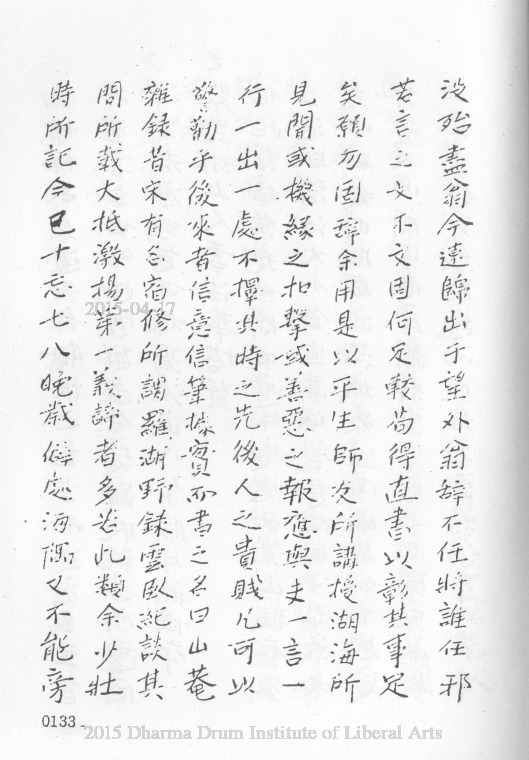 沒殆盡翁今連歸出于望外翁辭不任將誰任邪
若言之文不文固何足較苟得直書以彰其事足
矣願勿固辭余用是以平生師友所講授湖海所
見聞或機緣之扣擊或善惡之報應與夫一言一
行一出一處不擇其時之先後人之貴賤凡可以
警勸乎後來者信意信筆據實而書之名曰山菴
雜錄昔宋有尊宿修所謂羅湖野錄雲臥紀談其
間所載大抵激揚第一義諦者多若此類余少壯
時所記今已十忘七八晚歲僻處海隅又不能旁
0133
2015-04-17
2015 Dharma Drum Institute of Liberal Arts